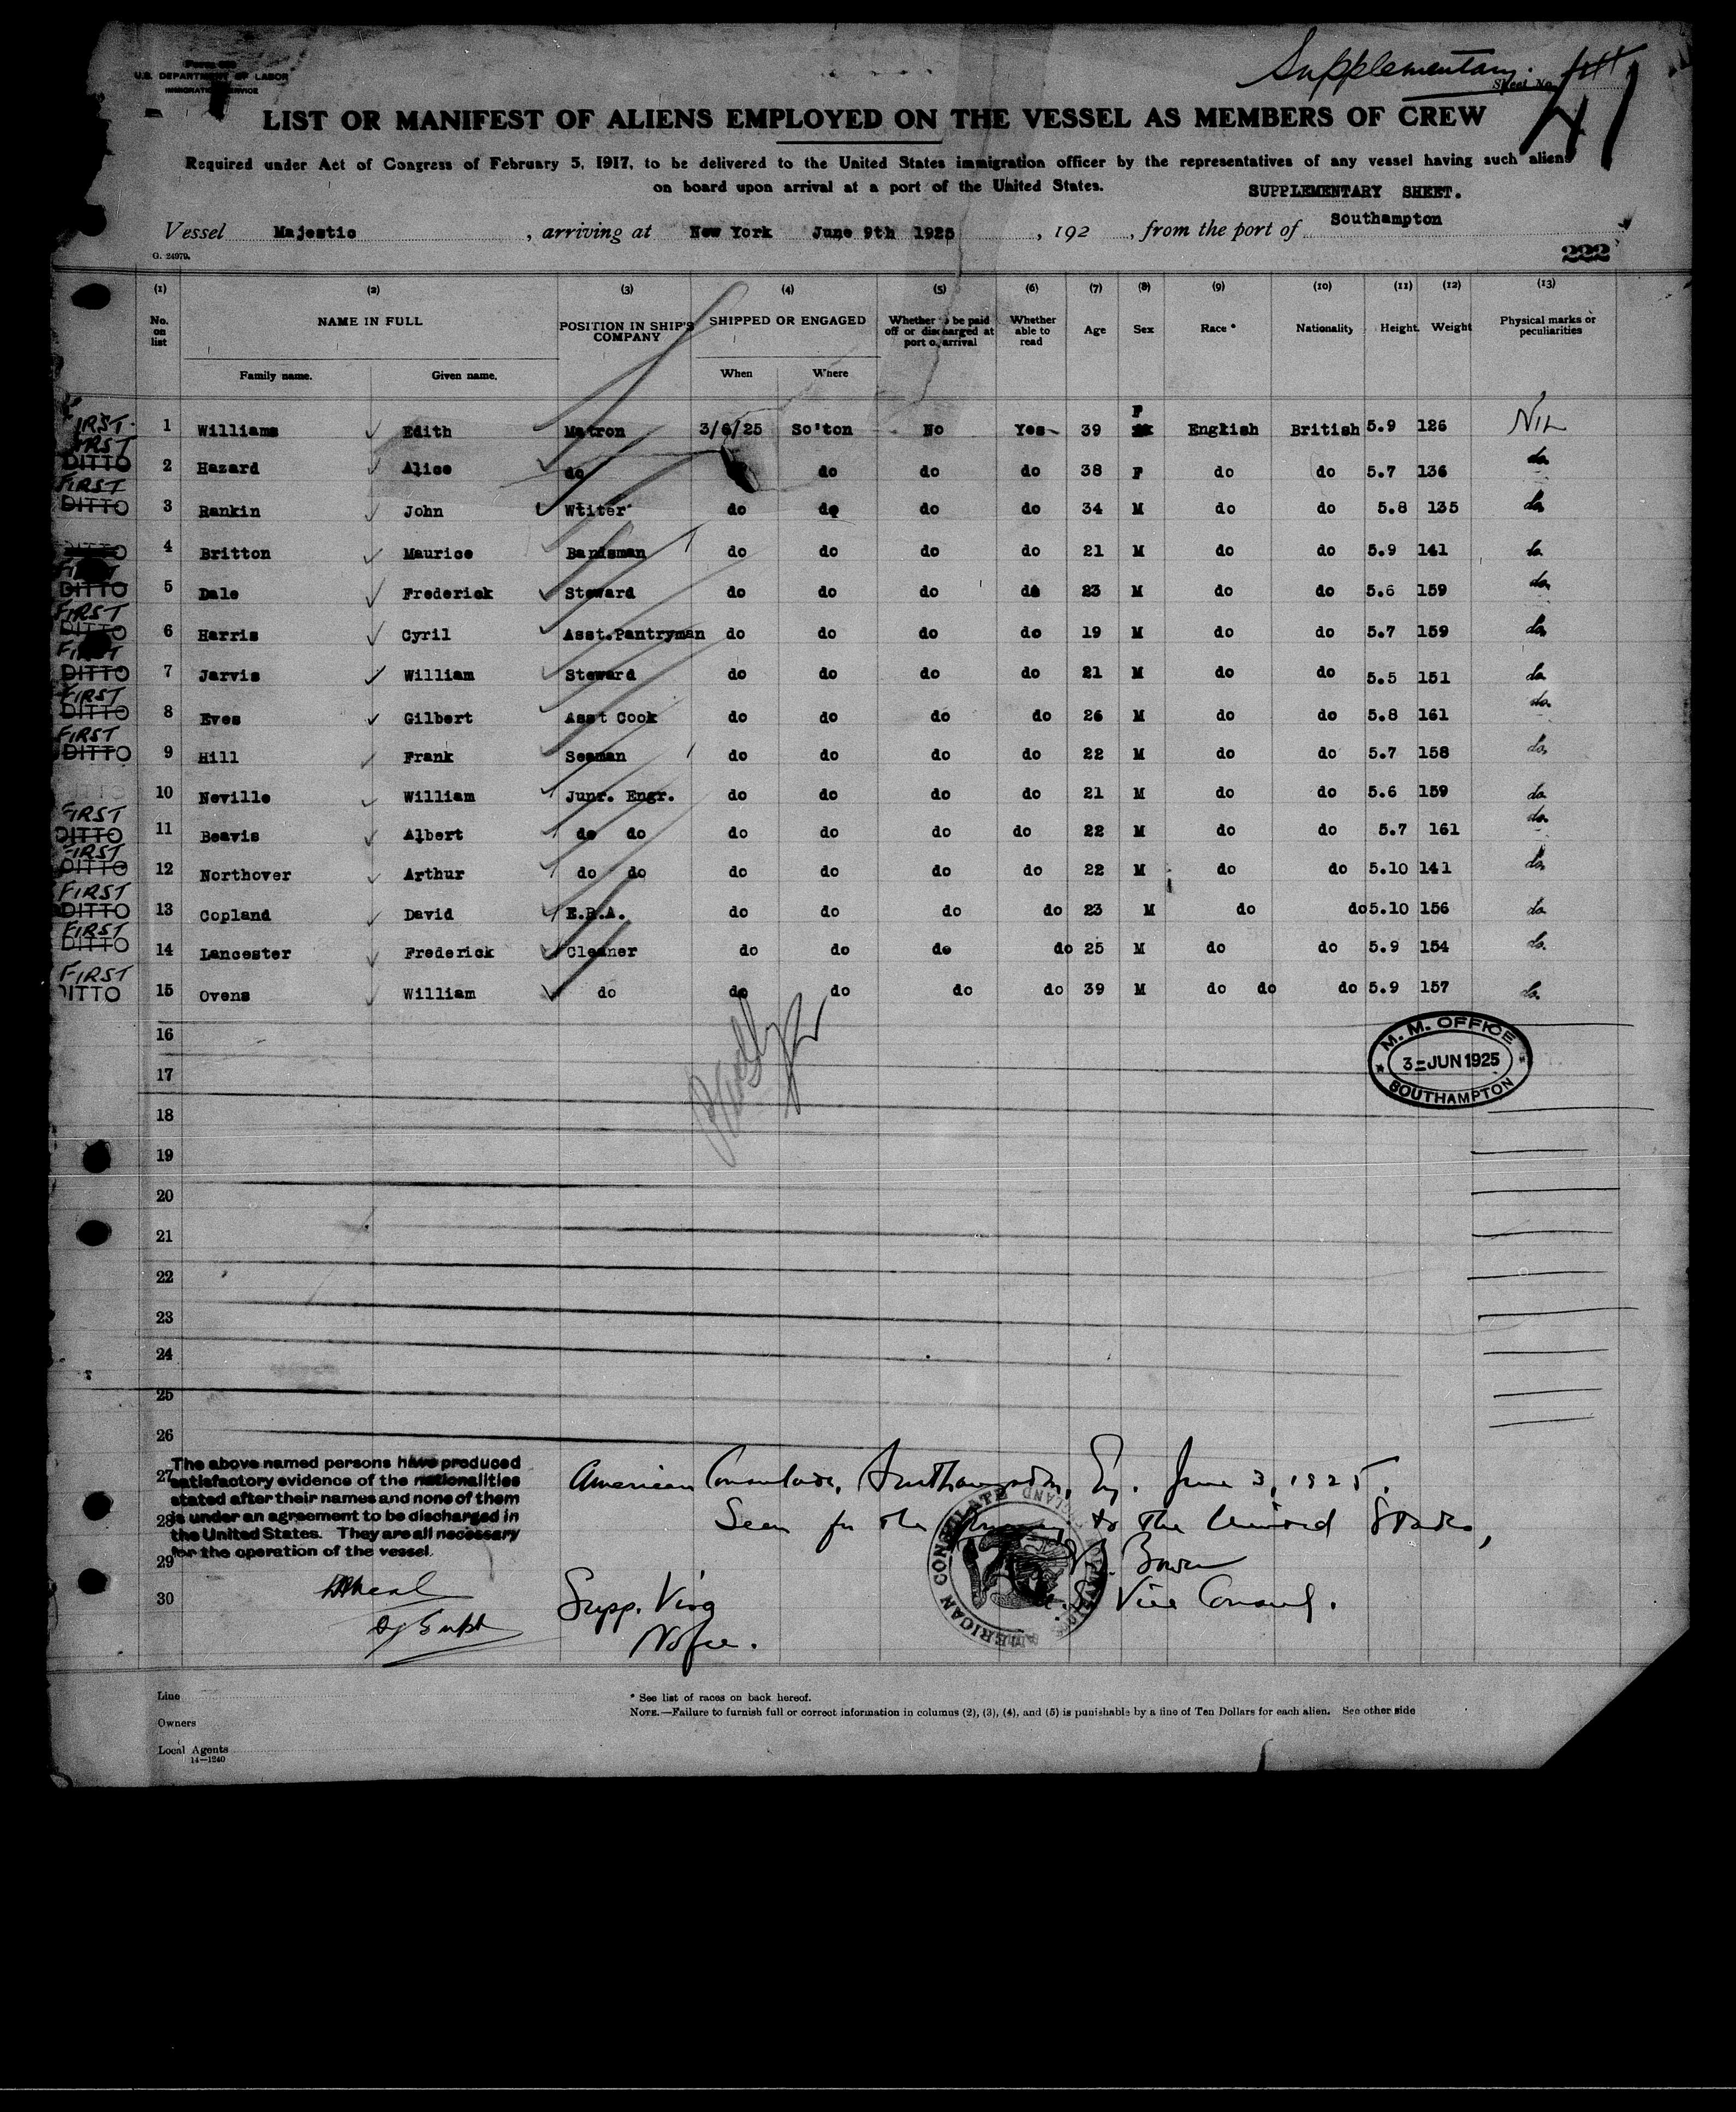 Supplementary.
Form 680
U.S. DEPARTMENT OF LABOR
IMMIGRATION SERVICE
Sheet No.
41
LIST OR MANIFEST OF ALIENS EMPLOYED ON THE VESSEL AS MEMBERS OF CREW
Required under Act of Congress of February 5, 1917, to be delivered to the United States immigration officer by the representatives of any vessel having such aliens
on board upon arrival at a port of the United States.
SUPPLEMENTARY SHEET.
Vessel Majestic, arriving at New York June 9th 1925, 192 , from the port of Southampton
G. 24079.
222
(1) (2) (3) (4) (5) (6) (7) (8) (9) (10) (11) (12) (13)
No. on list NAME IN FULL POSITION IN SHIP'S COMPANY SHIPPED OR ENGAGED Whether to be paid off or discharged at port of arrival Whether able to read Age Sex Race * Nationality Height Weight Physical marks or peculiarities
Family name. Given name. When Where
FIRST 1 Williams Edith Matron 3/6/25 So'ton No Yes 39 F English British 5.9 126 NIL
FIRST DITTO 2 Hazard Alice do do do do 38 F do do 5.7 136 do
FIRST DITTO 3 Rankin John Wtiter do do do do 34 M do do 5.8 135 do
DITTO 4 Britton Maurice Bandsman do do do do 21 M do do 5.9 141 do
FIRST DITTO 5 Dale Frederick Steward do do do do 23 M do do 5.6 159 do
FIRST DITTO 6 Harris Cyril Asst.Pantryman do do do do 19 M do do 5.7 159 do
FIRST DITTO 7 Jarvis William Steward do do do do 21 M do do 5.5 151 do
FIRST DITTO 8 Eves Gilbert Asst Cook do do do do 26 M do do 5.8 161 do
FIRST DITTO 9 Hill Frank Seaman do do do do 22 M do do 5.7 158 do
10 Neville William Junr. Engr. do do do do 21 M do do 5.6 159 do
FIRST DITTO 11 Beavis Albert do do do do do do 22 M do do 5.7 161 do
FIRST DITTO 12 Northover Arthur do do do do do do 22 M do do 5.10 141 do
FIRST DITTO 13 Copland David E.R.A. do do do do 23 M do do 5.10 156 do
FIRST DITTO 14 Lancester Frederick Cleaner do do do do 25 M do do 5.9 154 do
FIRST DITTO 15 Ovens William do do do do do 39 M do do do 5.9 157 do
16
M. M. OFFICE
3-JUN 1925
SOUTHAMPTON
17
18
19
20
21
22
23
24
25
26
27
28
29
30
The above named persons have produced
satisfactory evidence of the nationalities
stated after their names and none of them
is under an agreement to be discharged in
the United States. They are all necessary
for the operation of the vessel.
American Consulate, Southampton, Eng. June 3, 1925.
Seen for the journey to the United States,
Bowen
Vice Consul.
AMERICAN CONSULATE
Supp. Visa
No fee.
Line
Owners
Local Agents
14—1240
* See list of races on back hereof.
NOTE.—Failure to furnish full or correct information in columns (2), (3), (4), and (5) is punishable by a fine of Ten Dollars for each alien. See other side